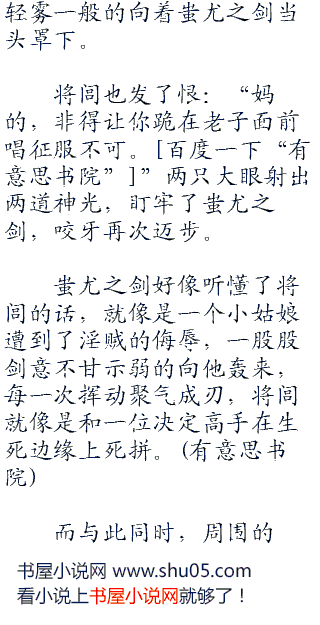 轻雾一般的向着蚩尤之剑当
头罩下。
将闾也发了恨：“妈
的，非得让你跪在老子面前
唱征服不可。[百度一下“有
意思书院”]”两只大眼射出
两道神光，盯牢了蚩尤之
剑，咬牙再次迈步。
蚩尤之剑好像听懂了将
闾的话，就像是一个小姑娘
遭到了淫贼的侮辱，一股股
剑意不甘示弱的向他轰来，
每一次挥动聚气成刃，将闾
就像是和一位决定高手在生
死边缘上死拼。(有意思书
院)
而与此同时，周围的
书屋小说网 www.shu05.com
看小说上书屋小说网就够了！